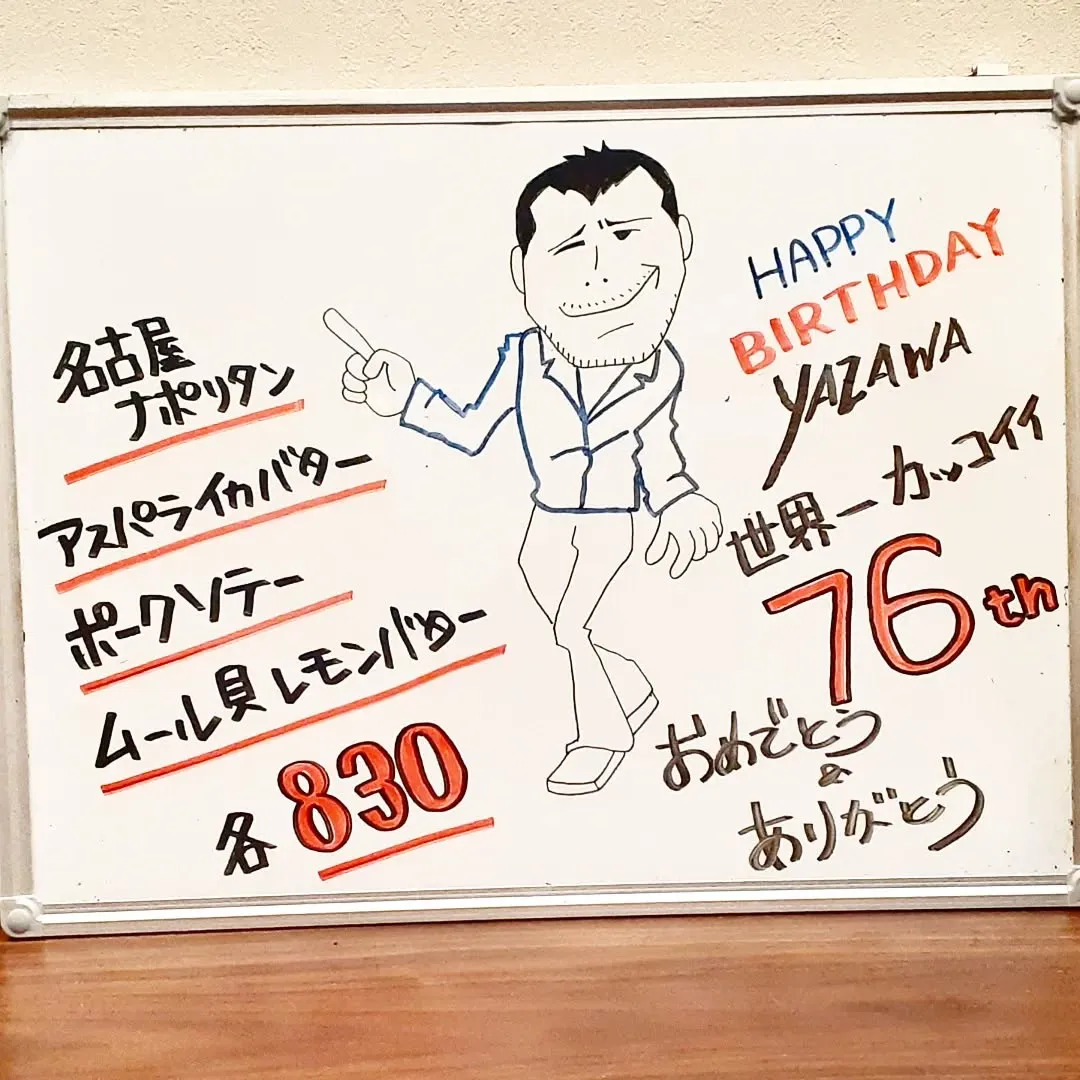 名古屋
ナポリタン
アスパライカバター
ポークソテー
ムール貝レモンバター
各830
HAPPY
BIRTHDAY
YAZAWA
世界一カッコイイ
76th
おめでとう
&
ありがとう